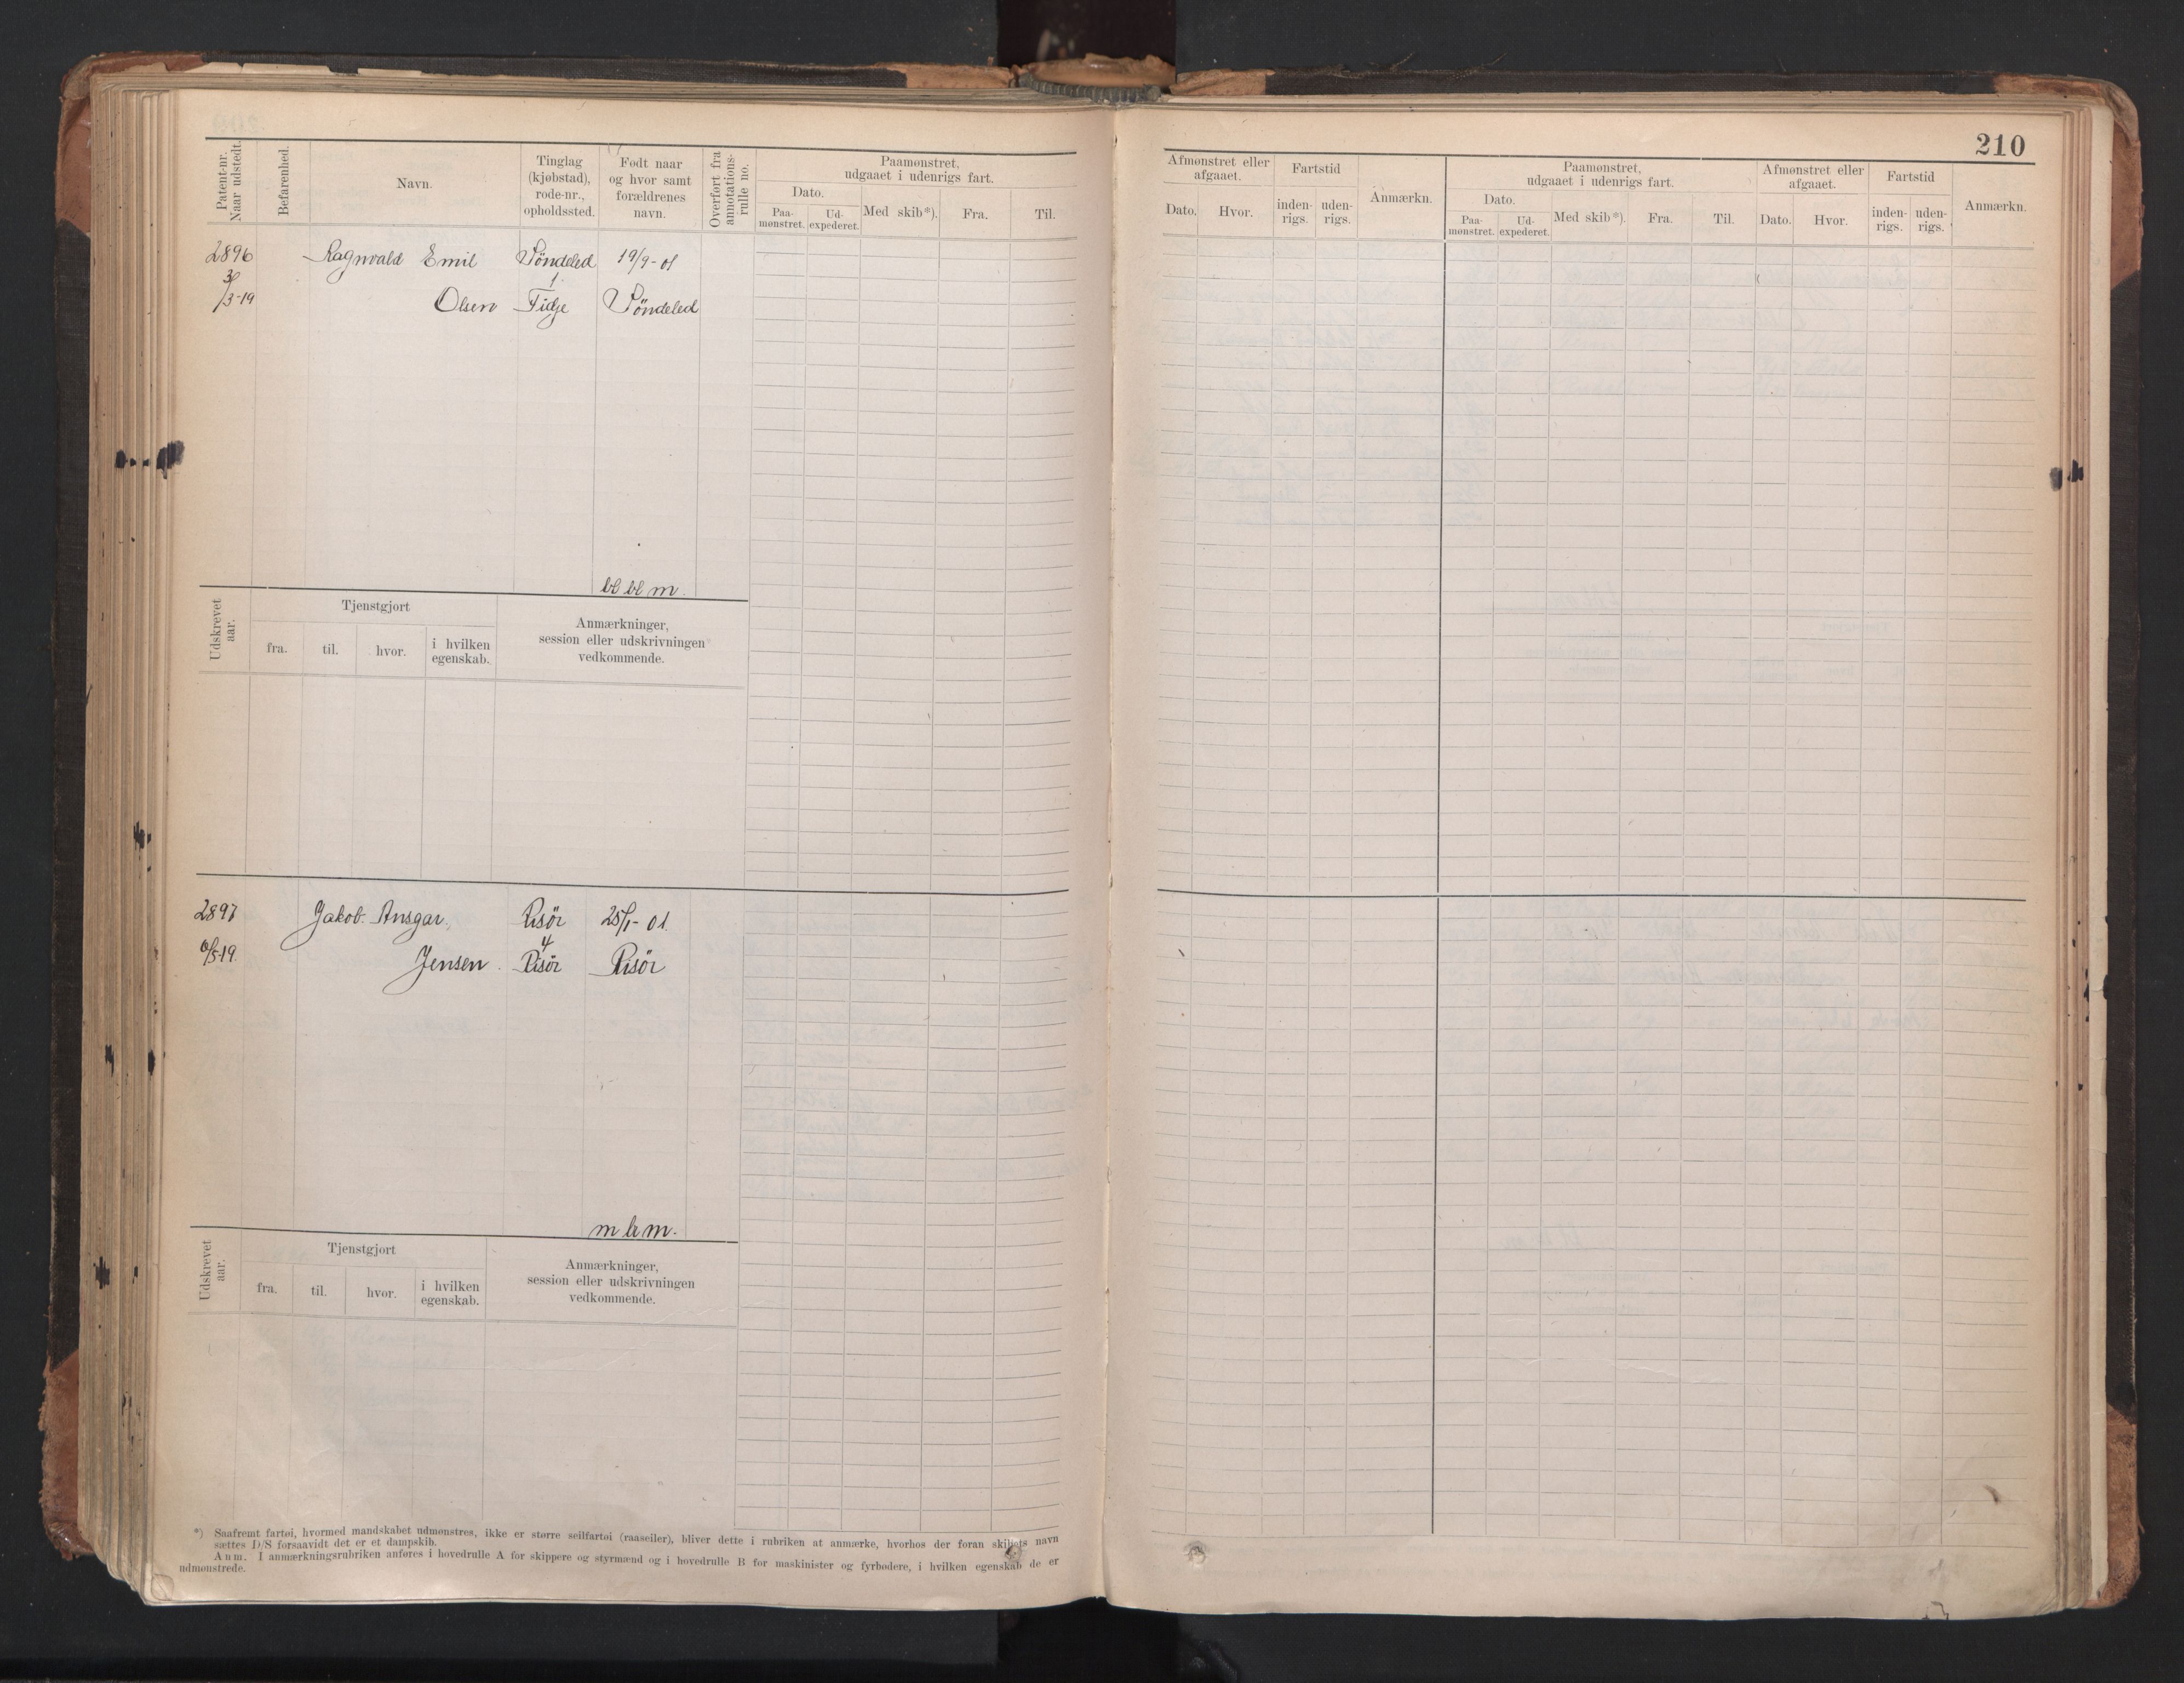 210
Patent-nr. Naar udstedt.
Befarenhed.
Navn.
Tinglag (kjøbstad), rode-nr., opholdssted.
Født naar og hvor samt forældrenes navn.
Overført fra annotations-rulle no.
Paamønstret, udgaaet i udenrigs fart.
Dato.
Paa-mønstret.
Ud-expederet.
Med skib*).
Fra.
Til.
Afmønstret eller afgaaet.
Dato.
Hvor.
Fartstid
inden-rigs.
uden-rigs.
Anmærkn.
Paamønstret, udgaaet i udenrigs fart.
Dato.
Paa-mønstret.
Ud-expederet.
Med skib*).
Fra.
Til.
Afmønstret eller afgaaet.
Dato.
Hvor.
Fartstid
inden-rigs.
uden-rigs.
Anmærkn.
2896 Ragnvald Emil Söndeled 19/9-01
1
/3-19 Olsen Fidje Söndeled
bl bl m.
Udskrevet aar.
Tjenstgjort
fra.
til.
hvor.
i hvilken egenskab.
Anmærkninger, session eller udskrivningen vedkommende.
2897 Jakob Ansgar. Risör 25/1-01.
4
6/5-19. Jensen. Risör Risör
m br m.
Udskrevet aar.
Tjenstgjort
fra.
til.
hvor.
i hvilken egenskab.
Anmærkninger, session eller udskrivningen vedkommende.
*) Saafremt fartøi, hvormed mandskabet udmønstres, ikke er større seilfartøi (raaseiler), bliver dette i rubriken at anmærke, hvorhos der foran skibets navn
sættes D/S forsaavidt det er et dampskib.
Anm. I anmærkningsrubriken anføres i hovedrulle A for skippere og styrmænd og i hovedrulle B for maskinister og fyrbødere, i hvilken egenskab de er
udmønstrede.